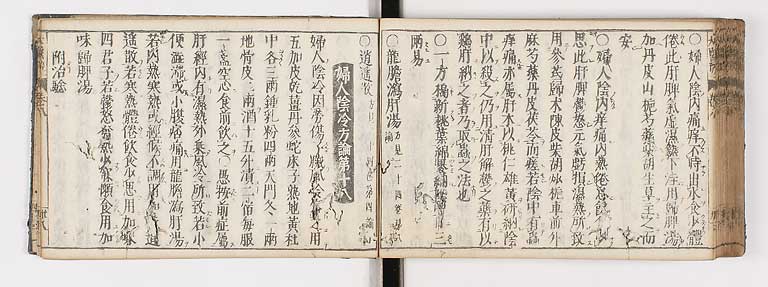 ○婦人陰內痛痒不時出水食少體
倦此肝脾氣虛濕熱下注用歸脾湯
加丹皮山梔芍藥柴胡生草主之而
安
○婦人陰內痒痛內熱倦怠飲食少
思此肝脾鬱怒元氣虧損濕熱所致
用參芪歸朮陳皮柴胡梔車前升
麻芍藥丹皮茯苓而瘥若陰中有蟲
痒痛亦屬肝木以桃仁雄黃研納陰
中以殺之仍用清肝解鬱之藥有以
雞肝納之者乃取蟲之法也
○一方搗新桃葉綿裹納陰中日三
兩易
○龍膽瀉肝湯
○逍遙散
婦人陰冷方論第十八
婦人陰冷因勞傷子臟風冷客之用
五加皮乾薑丹參蛇床子熟地黃杜
中各三兩鍾乳粉四兩天門冬一兩
地骨皮二兩酒十五升漬二宿每服
一盞空心食前飲之○愚按前症屬
肝經內有濕熱外乘風冷所致若小
便澀滯或小腹痛用龍膽瀉肝湯
若內熱寒熱或經候不調用加味逍
遙散若寒熱體倦飲食少思用加味
四君子若鬱怒發熱少寐懶食用加
味歸脾湯
附治驗